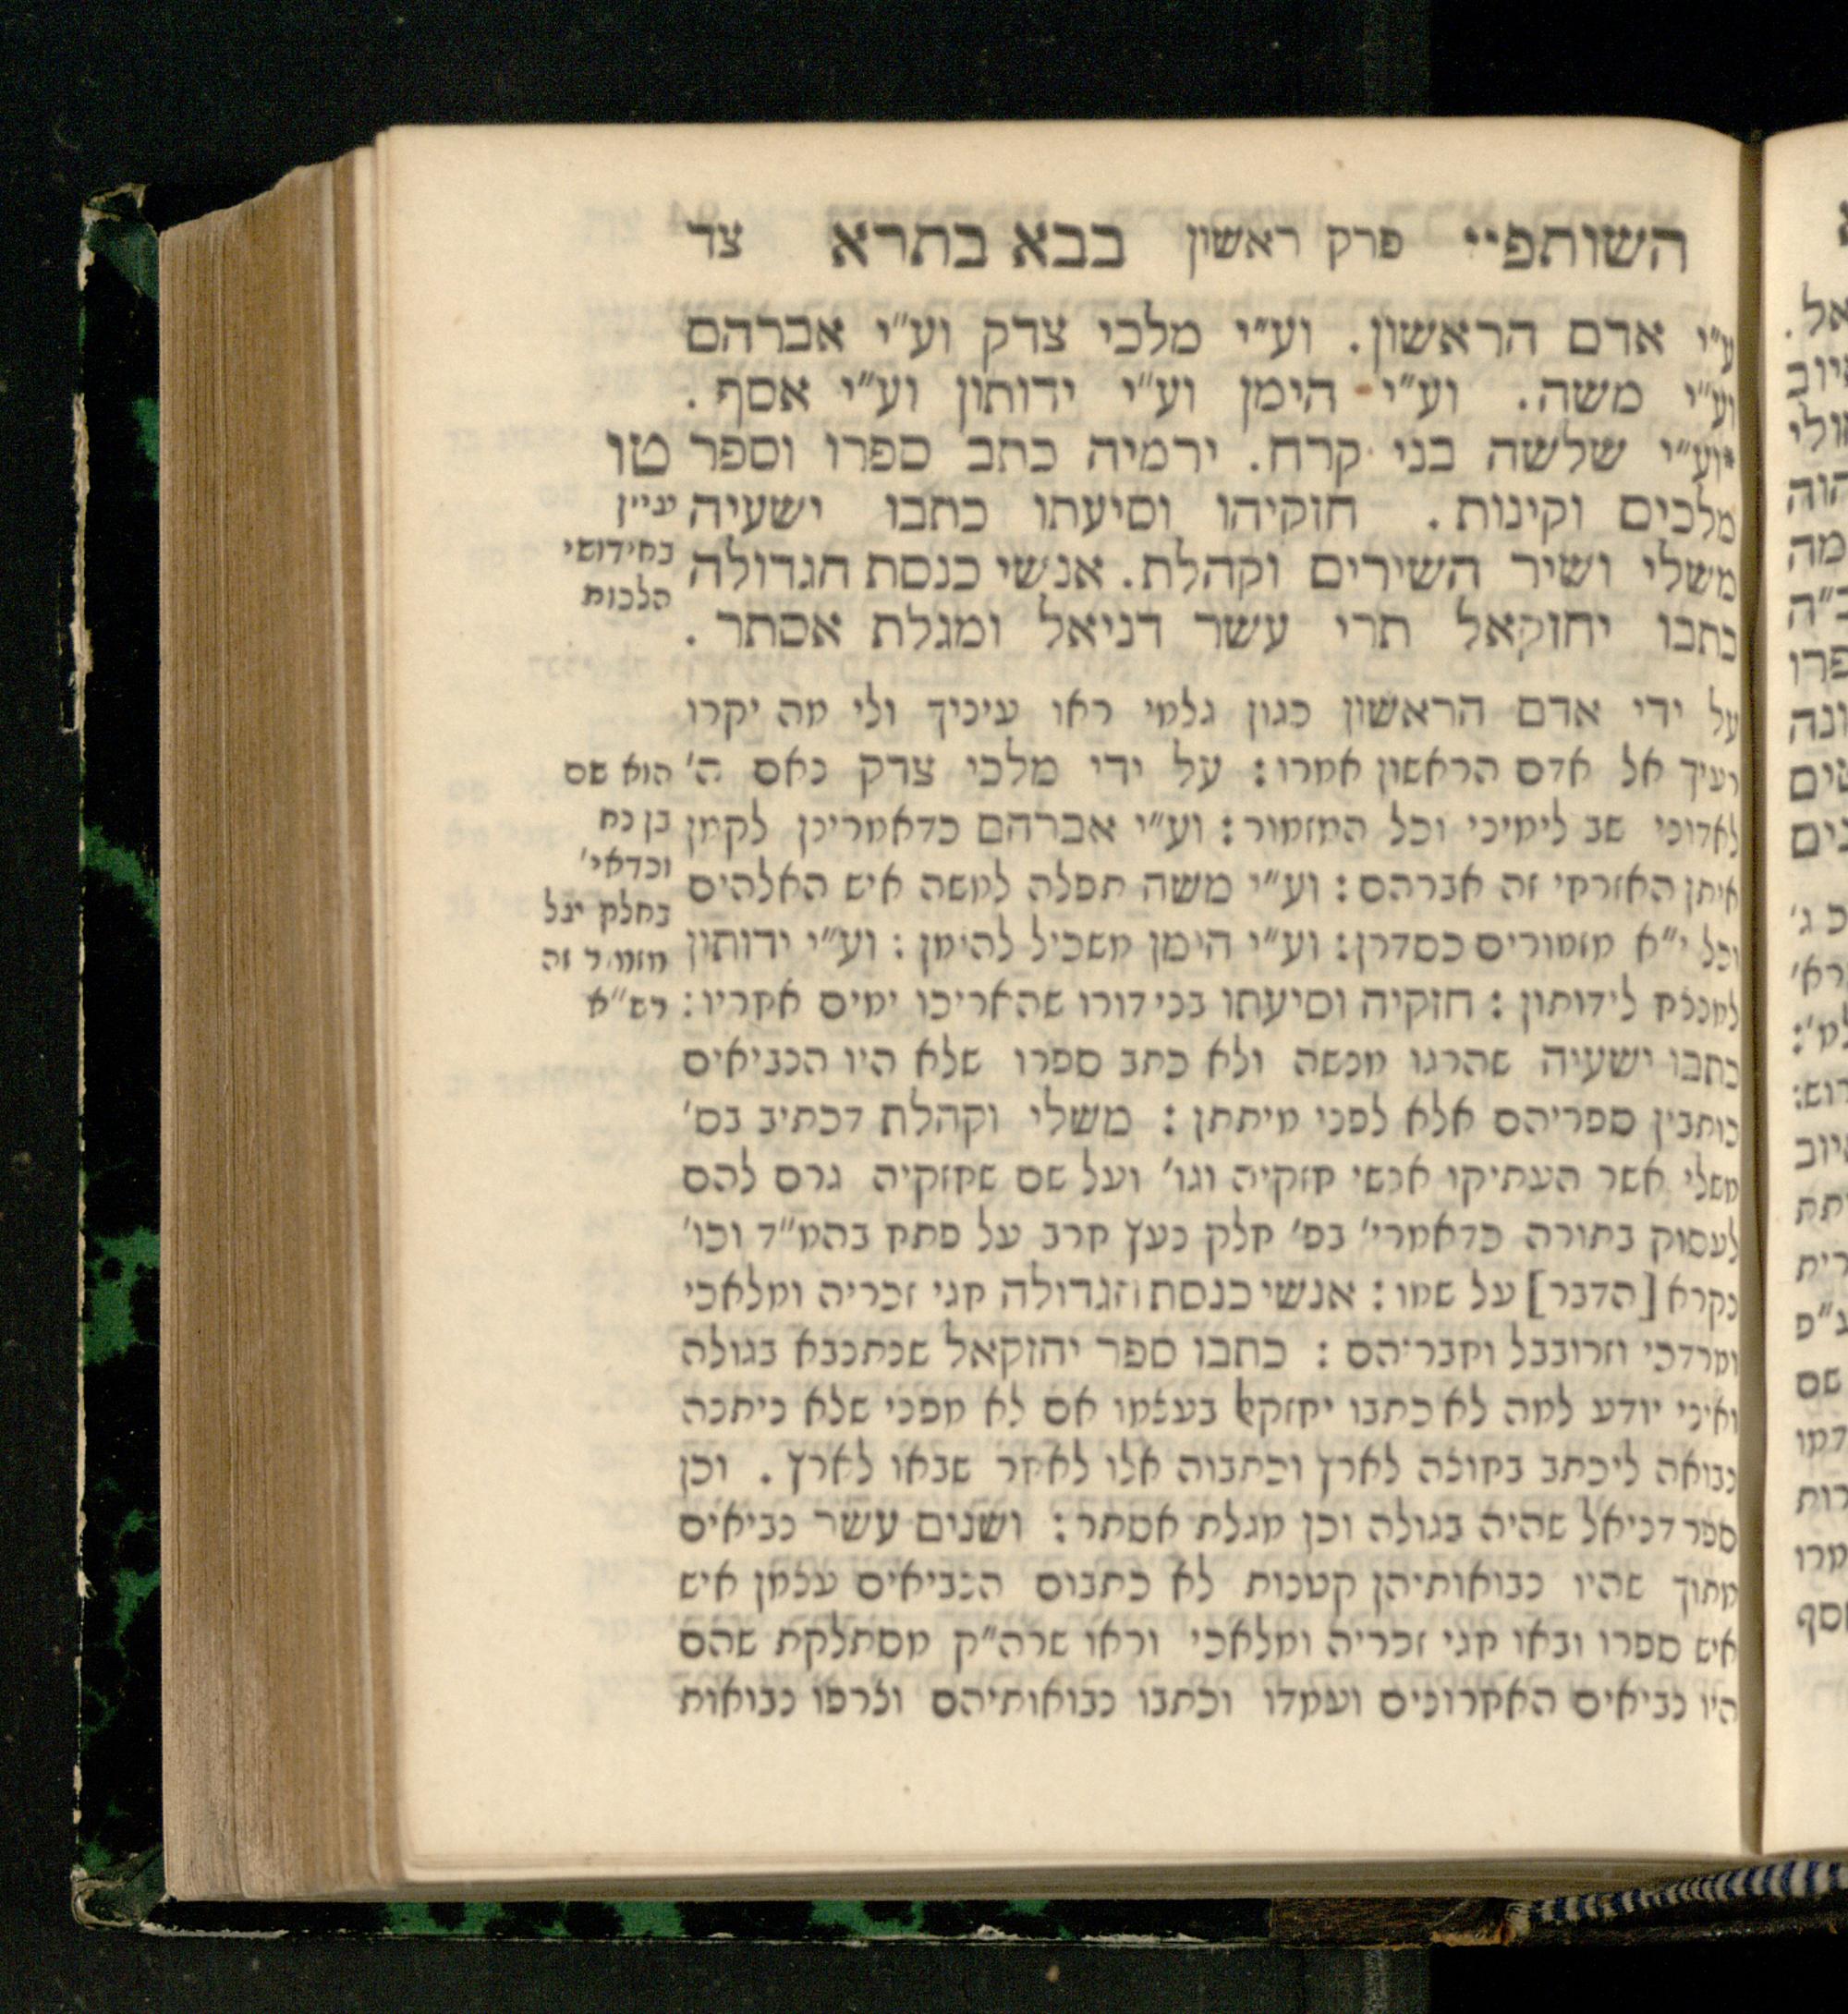 השותפיי פרק ראשון בבא בתרא צד
ע"י אדם הראשון. וע"י מלכי צדק וע"י אברהם
וע"י משה. וע"י הימן וע"י ידותון וע"י אסף.
וע"י שלשה בני קרח. ירמיה כתב ספרו וספר
מלכים וקינות. חזקיהו וסיעתו כתבו ישעיה
משלי ושיר השירים וקהלת. אנשי כנסת הגדולה
כתבו יחזקאל תרי עשר דניאל ומגלת אסתר.
טו
עיין
בחידושי
הלכות
על ידי אדם הראשון כגון גלמי ראו עיניך ולי מה יקרו
רעיך אל אדם הראשון אמרו: על ידי מלכי צדק נאם ה'
לאדוני שב לימיני וכל המזמור: וע"י אברהם כדאמרינן לקמן
איתן האזרחי זה אברהם: וע"י משה תפלה למשה איש האלהים
וכל י"א מזמורים כסדרן: וע"י הימן משכיל להימן: וע"י ידותון
למנצח לידותון: חזקיה וסיעתו בני דורו שהאריכו ימים אחריו:
כתבו ישעיה שהרגו מנשה ולא כתב ספרו שלא היו הנביאים
כותבין ספריהם אלא לפני מיתתן: משלי וקהלת דכתיב בס'
משלי אשר העתיקו אנשי חזקיה וגו' ועל שם שחזקיה גרם להם
לעסוק בתורה כדאמרי' בפ' חלק נעץ חרב על פתח בהמ"ד וכו'
נקרא [הדבר] על שמו: אנשי כנסת הגדולה חגי זכריה ומלאכי
ומרדכי וזרובבל וחבריהם: כתבו ספר יחזקאל שנתנבא בגולה
ואיני יודע למה לא כתבו יחזקאל בעצמו אם לא מפני שלא ניתנה
נבואה ליכתב בחוצה לארץ וכתבוה אלו לאחר שבאו לארץ. וכן
ספר דניאל שהיה בגולה וכן מגלת אסתר: ושנים עשר נביאים
מתוך שהיו נבואותיהן קטנות לא כתבום הנביאים עצמן איש
איש ספרו ובאו חגי זכריה ומלאכי וראו שרה"ק מסתלקת שהם
היו נביאים האחרונים ועמדו וכתבו נבואותיהם וצרפו נבואות
הוא שם
בן נח
וכדאי'
בחלק יצל
מזמור זה
רש"א